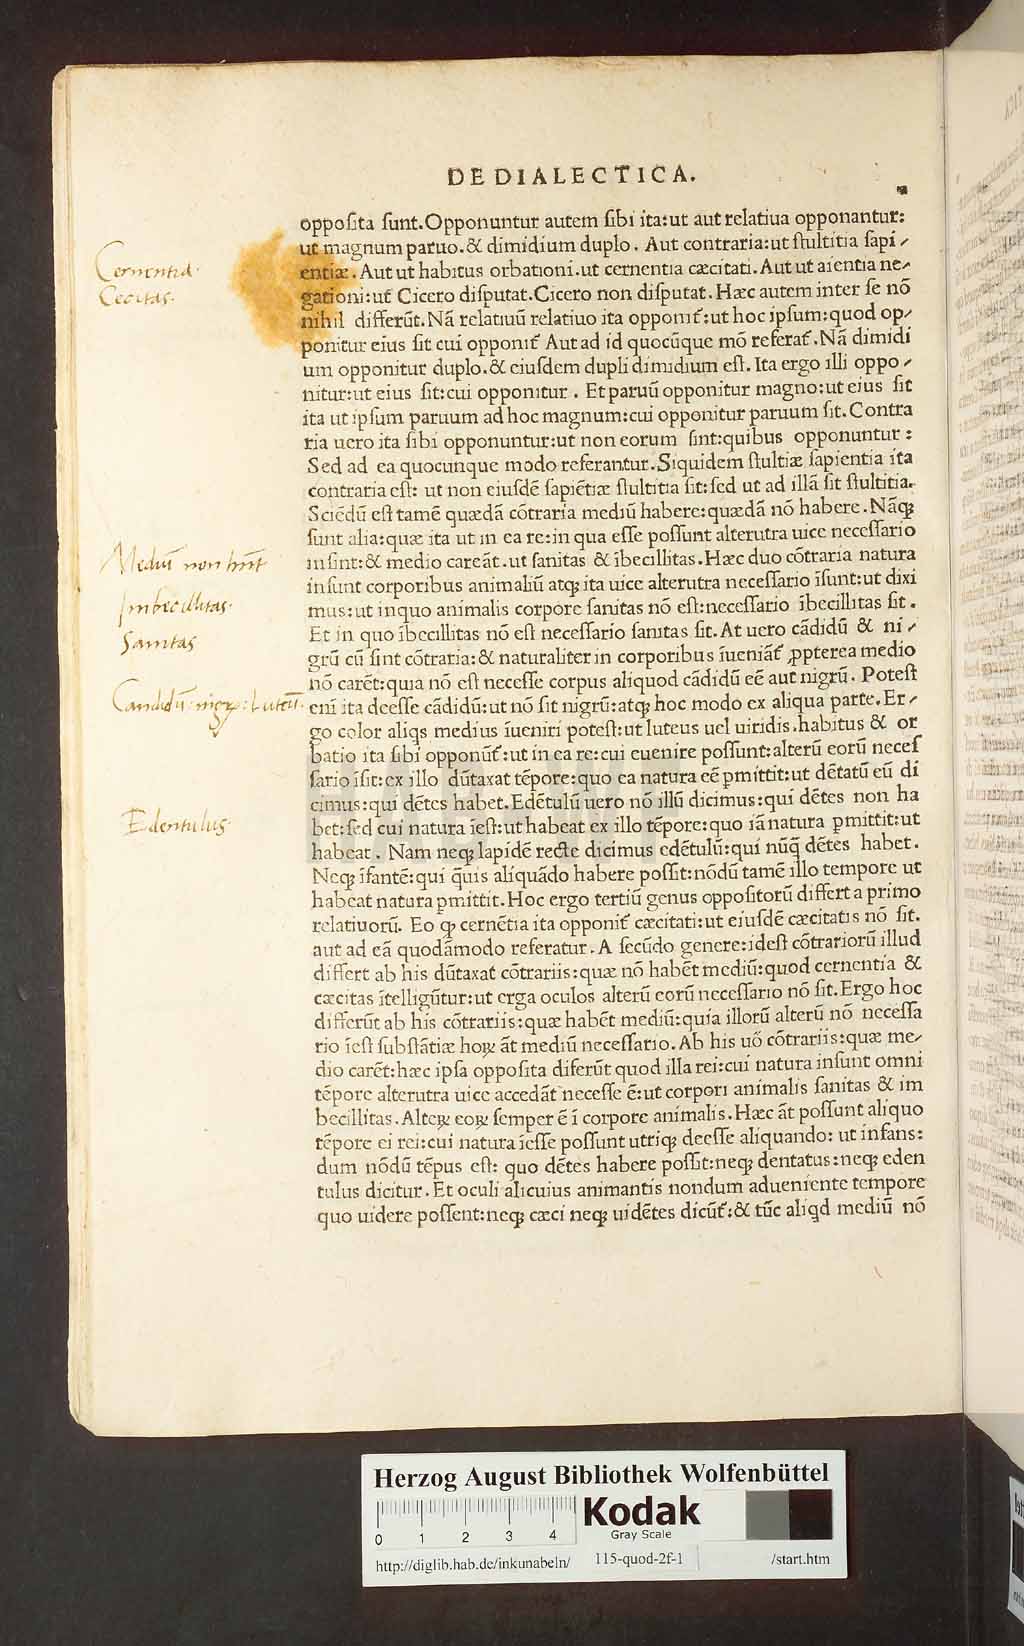 DE DIALECTICA.
oppoſita ſunt.Opponuntur autem ſibi ita:ut aut relatiua opponantur:
ut magnum paruo.& dimidium duplo. Aut contraria:ut ſtultitia ſapi-
entiæ.Aut ut habitus orbationi.ut cernentia cæcitati.Aut ut aientia ne-
gationi:ut Cicero diſputat.Cicero non diſputat.Hæc autem inter ſe nō
nihil differūt.Nā relatiuū relatiuo ita opponit̄:ut hoc ipſum:quod op-
ponitur eius ſit cui opponit̄ Aut ad id quocūque mō referat̄.Nā dimidi
um opponitur duplo.& eiuſdem dupli dimidium eſt. Ita ergo illi oppo-
nitur:ut eius ſit:cui opponitur. Et paruū opponitur magno:ut eius ſit
ita ut ipſum paruum ad hoc magnum:cui opponitur paruum ſit.Contra
ria uero ita ſibi opponuntur:ut non eorum ſint:quibus opponuntur:
Sed ad ea quocunque modo referantur.Siquidem ſtultiæ ſapientia ita
contraria eſt: ut non eiuſdē ſapiētiæ ſtultitia ſit:ſed ut ad illā ſit ſtultitia.
Sciēdū eſt tamē quædā cōtraria mediū habere:quædā nō habere.Nāqꝫ
ſunt alia:quæ ita ut in ea re:in qua eſſe poſſunt alterutra uice neceſſario
inſint:& medio careāt.ut ſanitas & ībecillitas.Hæc duo cōtraria natura
inſunt corporibus animaliū atqꝫ ita uice alterutra neceſſario īſunt:ut dixi
mus:ut in quo animalis corpore ſanitas nō eſt:neceſſario ībecillitas ſit.
Et in quo ībecillitas nō eſt neceſſario ſanitas ſit.At uero cādidū & ni-
grū cū ſint cōtraria:& naturaliter in corporibus īueniāt̄ ꝓpterea medio
nō carēt:quia nō eſt neceſſe corpus aliquod cādidū eē aut nigrū. Poteſt
enī ita deeſſe cādidū:ut nō ſit nigrū:atqꝫ hoc modo ex aliqua parte.Er-
go color aliqs medius īueniri poteſt:ut luteus uel uiridis.habitus & or
batio ita ſibi opponūt̄:ut in ea re:cui euenire poſſunt:alterū eorū neceſ
ſario īſit:ex illo dūtaxat tēpore:quo ea natura eē ꝑmittit:ut dētatū eū di
cimus:qui dētes habet.Edētulū uero nō illū dicimus:qui dētes non ha
bet:ſed cui natura īeſt:ut habeat ex illo tēpore:quo iā natura ꝑmittit:ut
habeat. Nam neqꝫ lapidē recte dicimus edētulū:qui nūꝗ̄ dētes habet.
Neqꝫ īfantē:qui ꝗ̄uis aliquādo habere poſſit:nōdū tamē illo tempore ut
habeat natura ꝑmittit.Hoc ergo tertiū genus oppoſitorū differt a primo
relatiuorū. Eo ꝙ cernētia ita opponit̄ cæcitati:ut eiuſdē cæcitatis nō ſit.
aut ad eā quodāmodo referatur.A ſecūdo genere:ideſt cōtrariorū illud
differt ab his dūtaxat cōtrariis:quæ nō habēt mediū:quod cernentia &
cæcitas ītelligūtur:ut erga oculos alterū eorū neceſſario nō ſit.Ergo hoc
differūt ab his cōtrariis:quæ habēt mediū:quia illorū alterū nō neceſſa
rio īeſt ſubſtātiæ hoꝝ āt mediū neceſſario.Ab his uō cōtrariis:quæ me-
dio carēt:hæc ipſa oppoſita diferūt quod illa rei:cui natura inſunt omni
tēpore alterutra uice accedāt neceſſe ē:ut corpori animalis ſanitas & im
becillitas.Alteꝝ eoꝝ ſemper ē ī corpore animalis.Hæc āt poſſunt aliquo
tēpore ei rei:cui natura īeſſe poſſunt utriqꝫ deeſſe aliquando: ut infans:
dum nōdū tēpus eſt: quo dētes habere poſſit:neqꝫ dentatus:neqꝫ eden
tulus dicitur.Et oculi alicuius animantis nondum adueniente tempore
quo uidere poſſent:neqꝫ cæci neqꝫ uidētes dicūt̄:& tūc aliqd mediū nō
Cernentia.
Cecitas.
Mediū non hn̄t
Imbecillitas.
Sanitas
Candidū: nigꝝ: Luteū.
Edentulus
Herzog August Bibliothek Wolfenbüttel
Kodak
Gray Scale
0 1 2 3 4
http://diglib.hab.de/inkunabeln/ 115-quod-2f-1 /start.htm
HAB WF